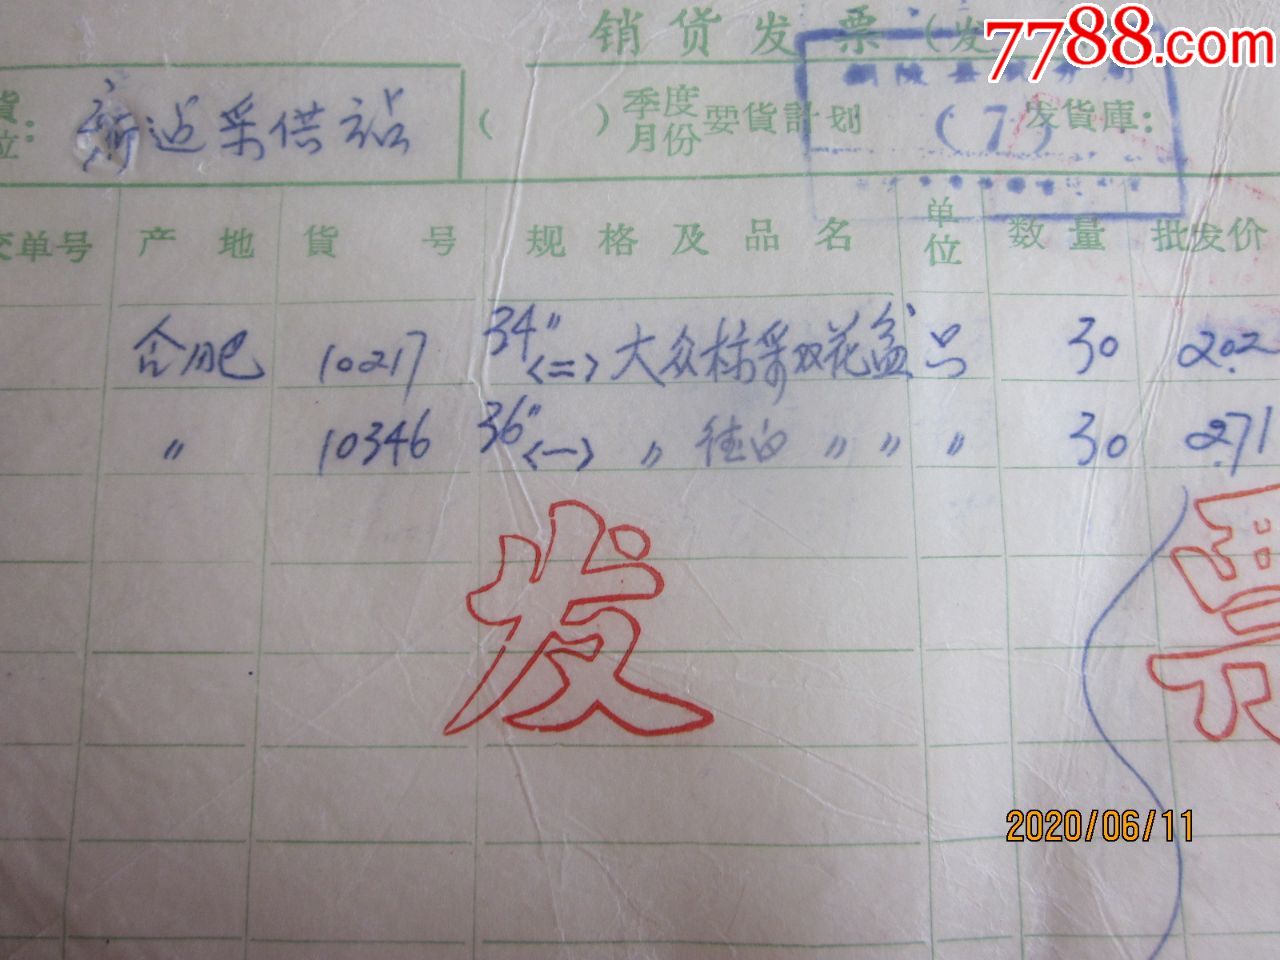 销货发票(发
7788.com
铜陵县税务局
(7)
貨位:
采供站
( )季度月份要貨計划
发货庫:
单号 产地 貨号 规格及品名 单位 数量 批发价
合肥 10217 34" <二> 大众标采双花盆 只 30 2.02
" 10346 36" <一> " " " " 30 2.71
发票
2020/06/11